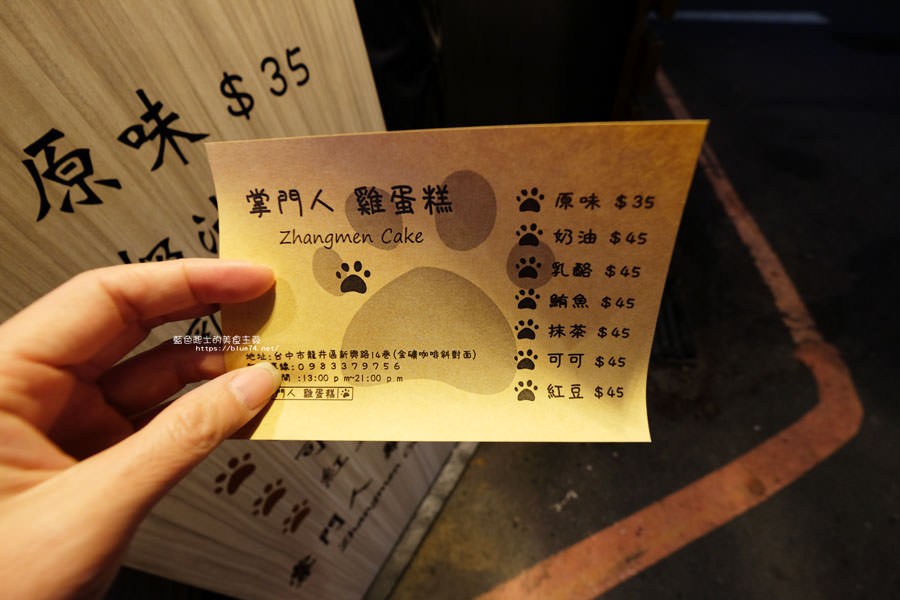 原味 $35
掌門人 雞蛋糕
Zhangmen Cake
原味 $35
奶油 $45
乳酪 $45
鮪魚 $45
抹茶 $45
可可 $45
紅豆 $45
地址:台中市龍井區新興路14巷(金礦咖啡斜對面)
線:0983379756
間:13:00 pm~21:00 pm
門人 雞蛋糕
藍色起士的美食主義
https://blue74.net/
可
紅
掌門人
Zhangmen